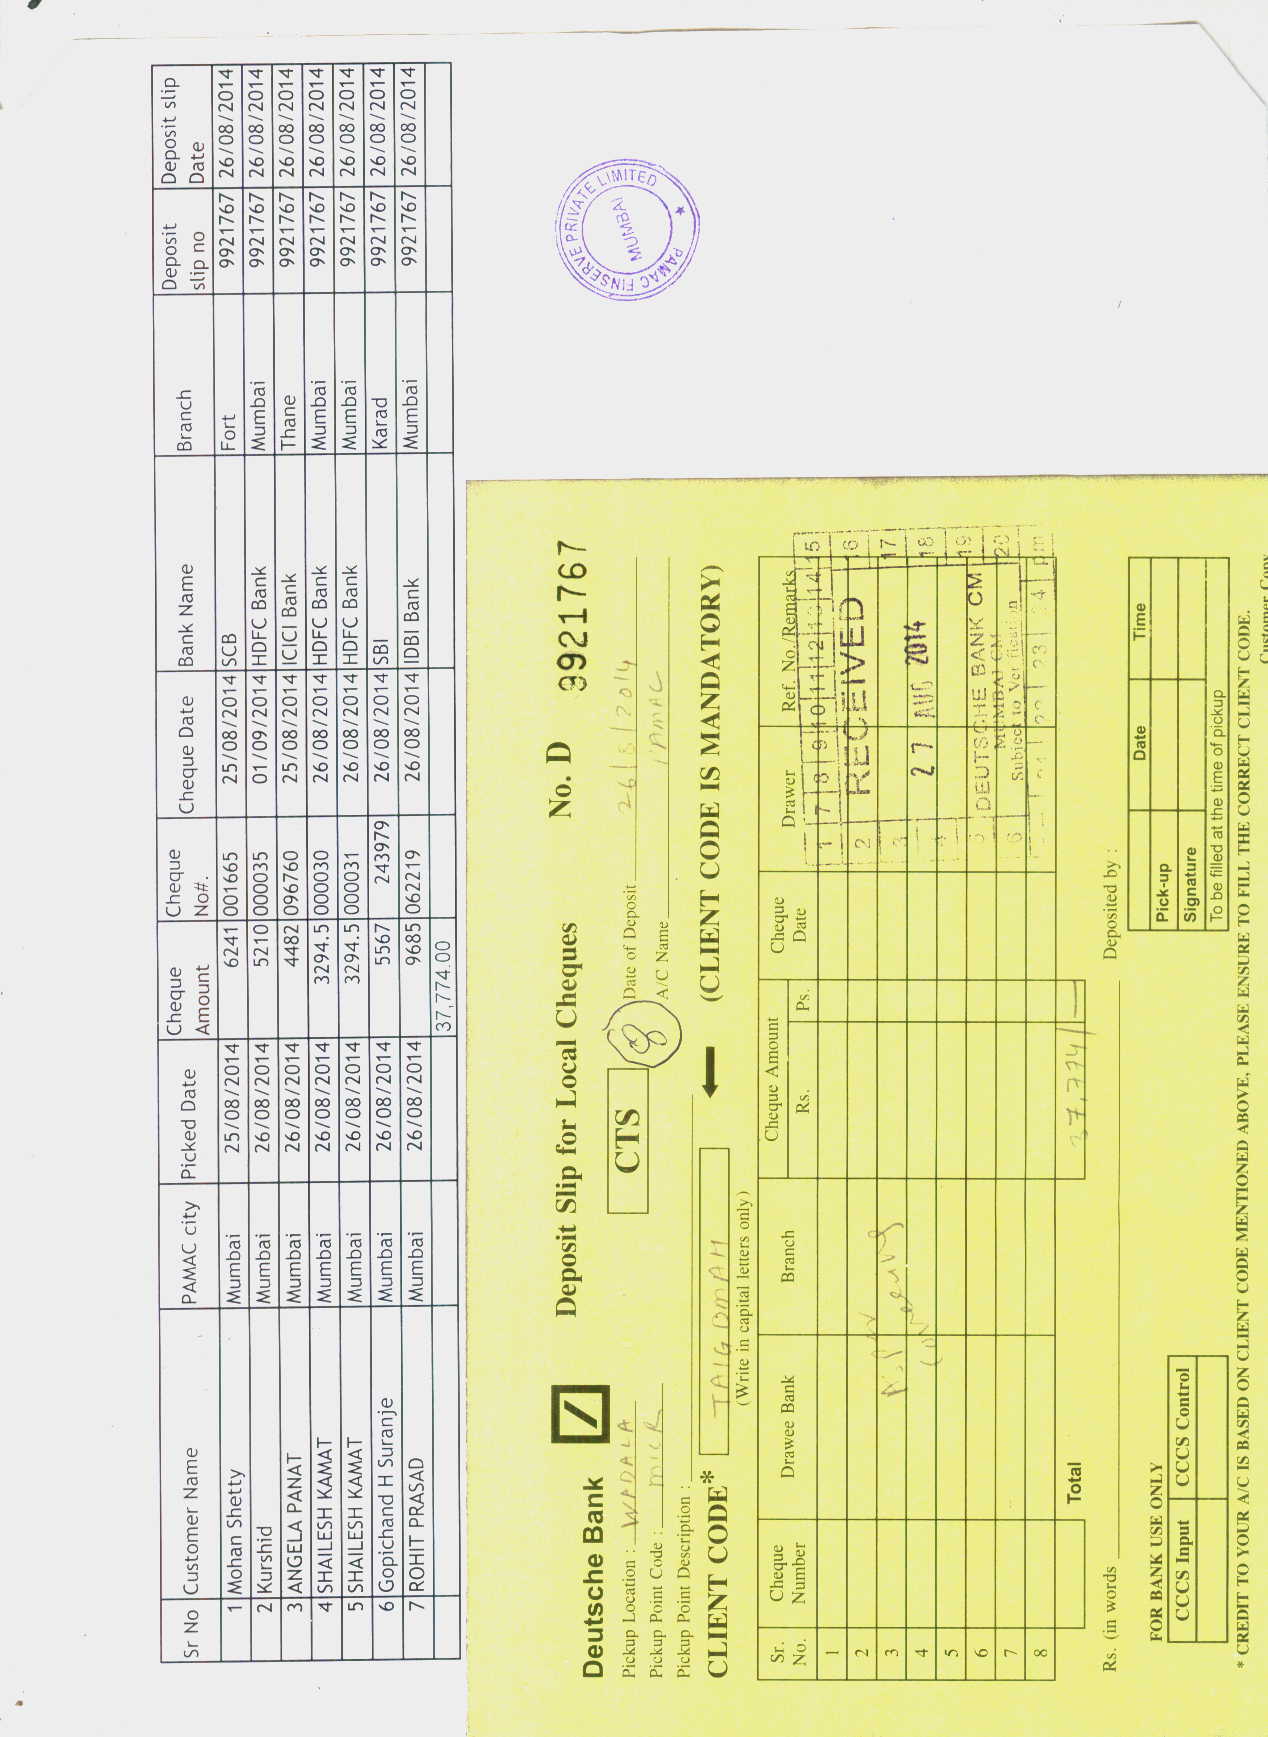 Sr No Customer Name PAMAC city Picked Date Cheque Amount Cheque No#. Cheque Date Bank Name Branch Deposit slip no Deposit slip Date
1 Mohan Shetty Mumbai 25/08/2014 6241 001665 25/08/2014 SCB Fort 9921767 26/08/2014
2 Kurshid Mumbai 26/08/2014 5210 000035 01/09/2014 HDFC Bank Mumbai 9921767 26/08/2014
3 ANGELA PANAT Mumbai 26/08/2014 4482 096760 25/08/2014 ICICI Bank Thane 9921767 26/08/2014
4 SHAILESH KAMAT Mumbai 26/08/2014 3294.5 000030 26/08/2014 HDFC Bank Mumbai 9921767 26/08/2014
5 SHAILESH KAMAT Mumbai 26/08/2014 3294.5 000031 26/08/2014 HDFC Bank Mumbai 9921767 26/08/2014
6 Gopichand H Suranje Mumbai 26/08/2014 5567 243979 26/08/2014 SBI Karad 9921767 26/08/2014
7 ROHIT PRASAD Mumbai 26/08/2014 9685 062219 26/08/2014 IDBI Bank Mumbai 9921767 26/08/2014
37,774.00
PAMAC FINSERVE PRIVATE LIMITED
MUMBAI
Deutsche Bank Deposit Slip for Local Cheques No. D 9921767
Pickup Location : WADALA CTS 8 Date of Deposit 26/8/2014
Pickup Point Code : MICR A/C Name PAMAC
Pickup Point Description :
CLIENT CODE* (CLIENT CODE IS MANDATORY)
(Write in capital letters only)
Sr. No. Cheque Number Drawee Bank Branch Cheque Amount Rs. Ps. Cheque Date Drawer Ref. No./Remarks
1
2
3
4
5
6
7
8
1 7 8 9 10 11 12 13 14 15
2 RECEIVED 16
3 17
4 27 AUG 2014 18
5 DEUTSCHE BANK CM 19
MUMBAI CM 20
6 Subject to Verification
23 24 pm
Total 37,774/-
Rs. (in words Deposited by :
FOR BANK USE ONLY
CCCS Input CCCS Control
Date Time
Pick-up
Signature
To be filled at the time of pickup
* CREDIT TO YOUR A/C IS BASED ON CLIENT CODE MENTIONED ABOVE, PLEASE ENSURE TO FILL THE CORRECT CLIENT CODE.
Customer Copy